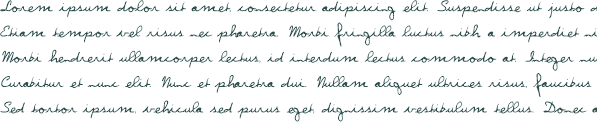 Lorem ipsum dolor sit amet, consectetur adipiscing elit. Suspendisse ut justo
Etiam tempor vel risus nec pharetra. Morbi fringilla luctus nibh a imperdiet
Morbi hendrerit ullamcorper lectus, id interdum lectus commodo at. Integer
Curabitur et nunc elit. Nunc et pharetra dui. Nullam aliquet ultrices risus, faucibus
Sed tortor ipsum, vehicula sed purus eget, dignissim vestibulum tellus. Donec a